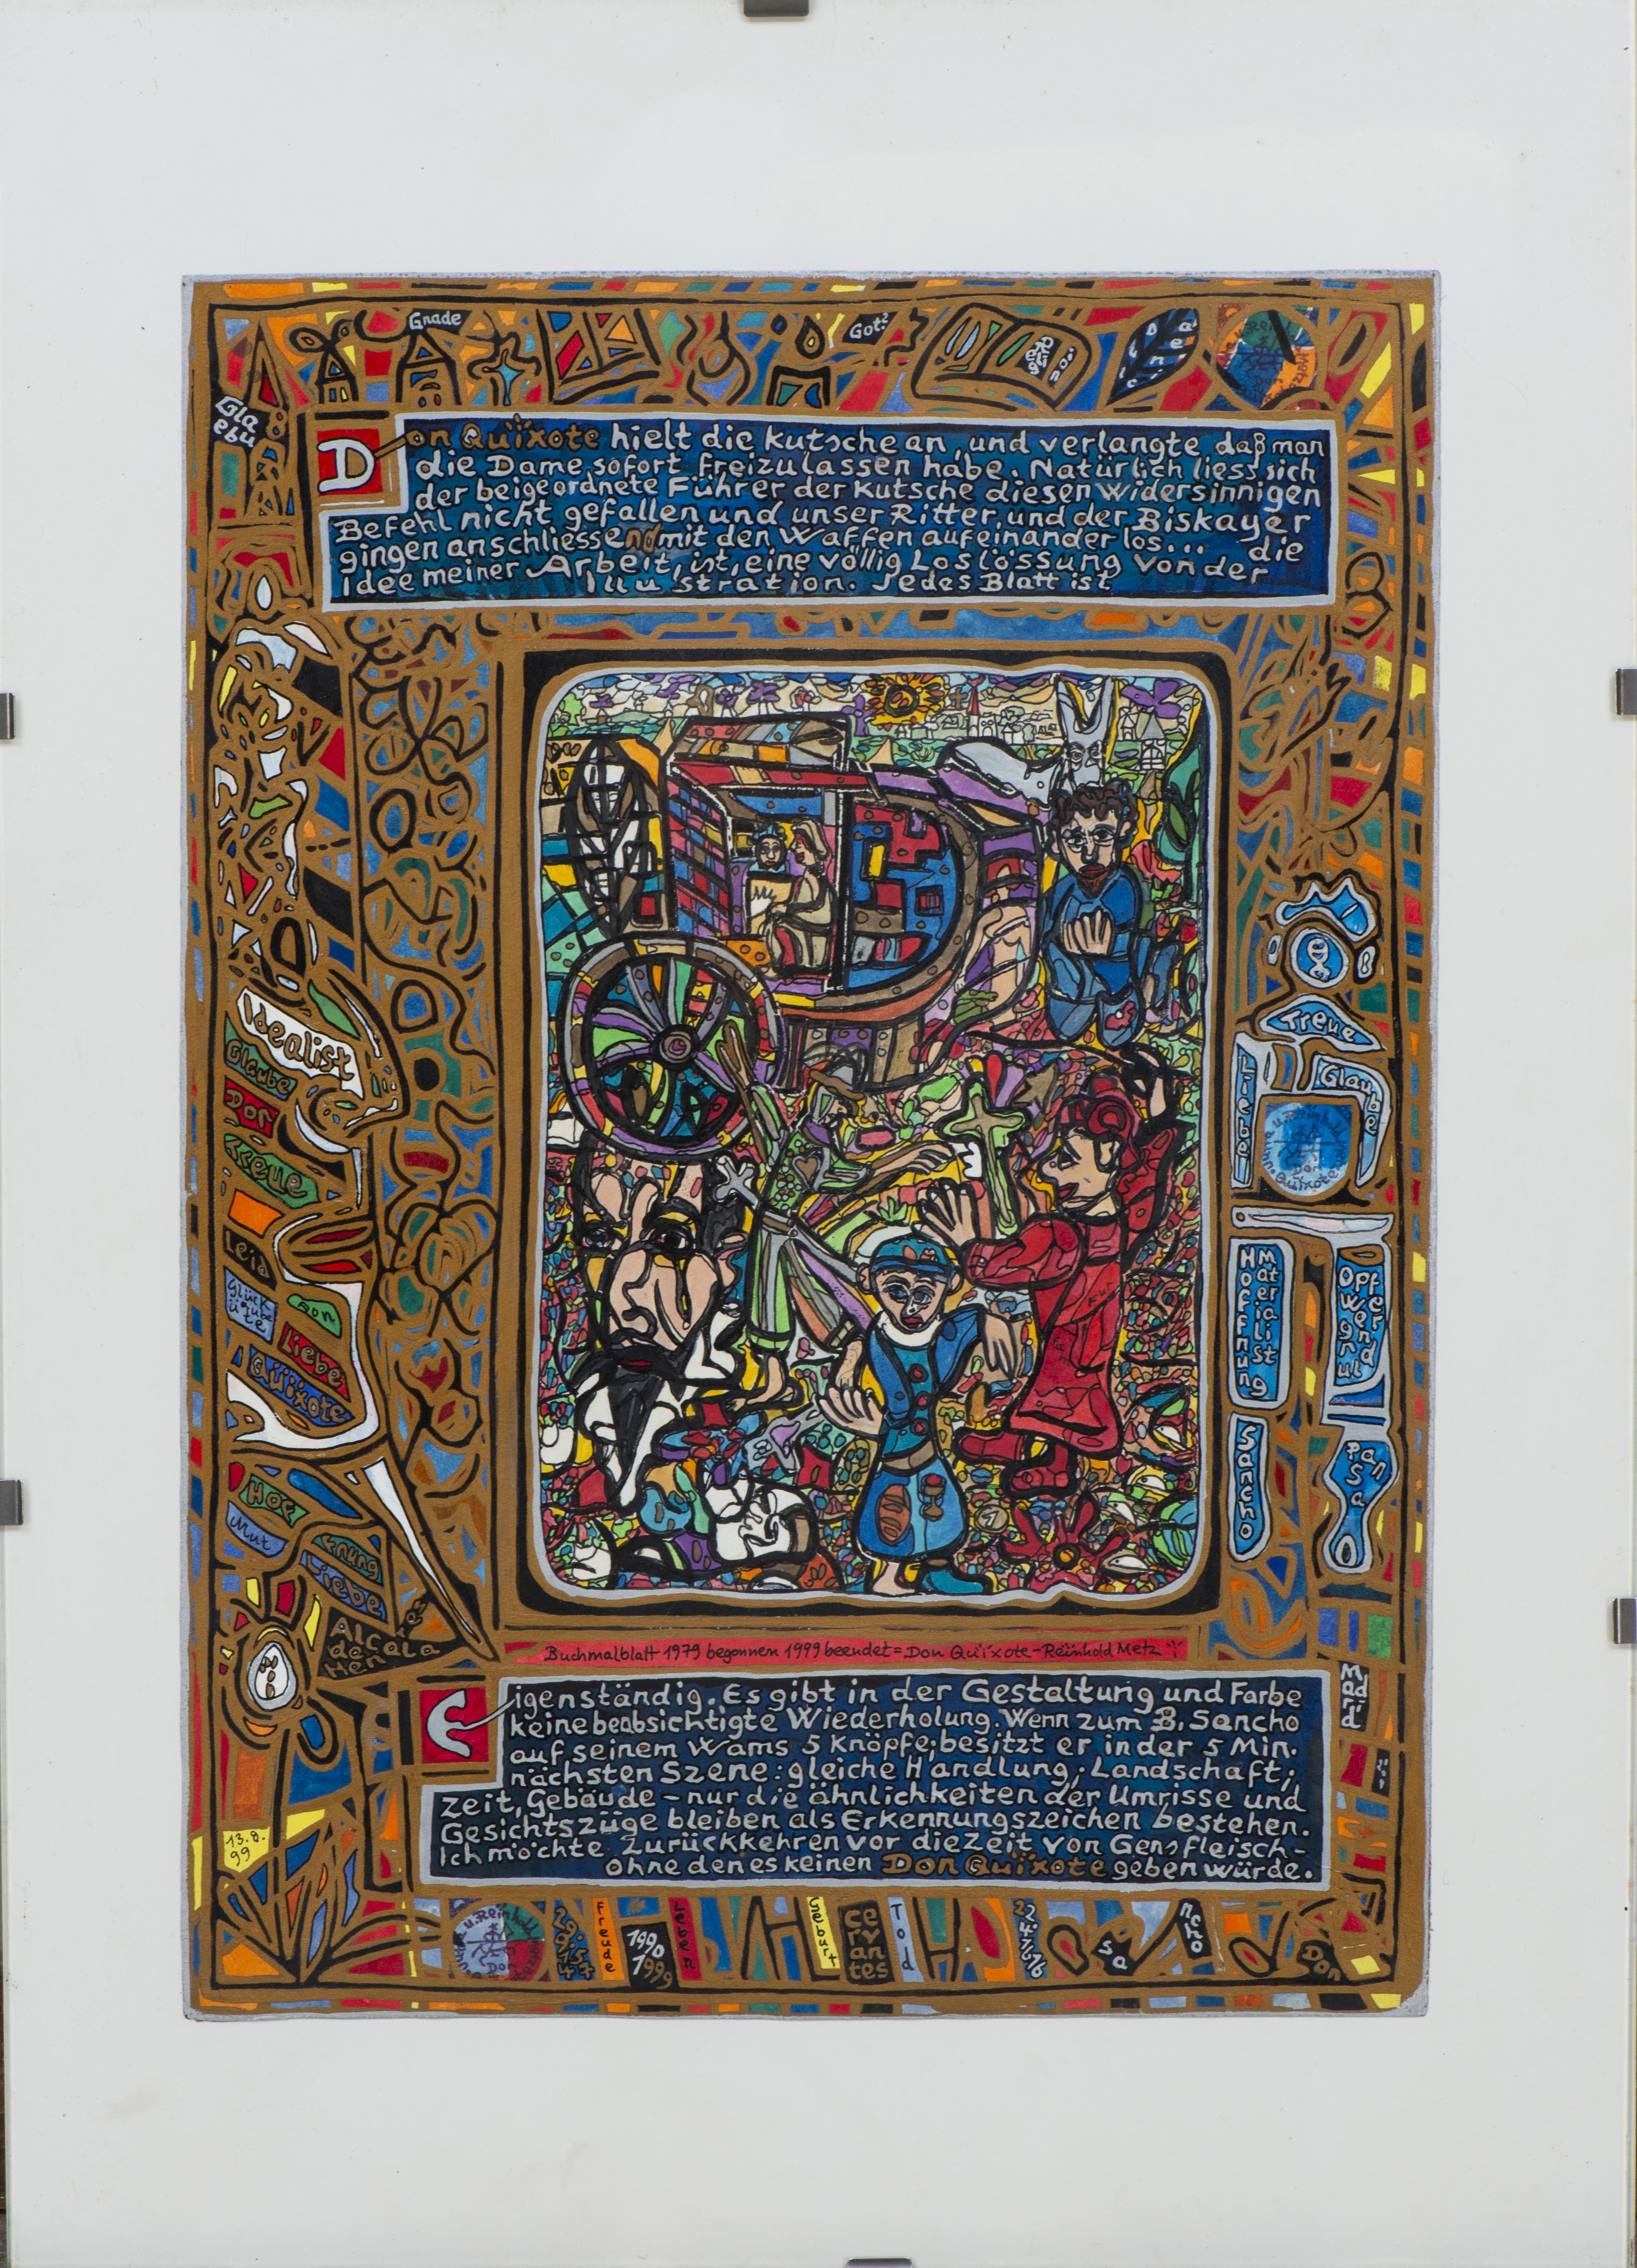 Gnade
Got?
Gla
ebu
Don Quïxote hielt die Kutsche an, und verlangte daß man
die Dame sofort freizulassen habe. Natürlich liess sich
der beigeordnete Führer der Kutsche diesen widersinnigen
Befehl nicht gefallen und unser Ritter, und der Biskayer
gingen anschliessend mit den Waffen aufeinander los... die
Idee meiner Arbeit, ist, eine völlig Loslössung von der
Illustration. Jedes Blatt ist
Idealist
Glaube
Don
Treue
Leid
Glück
ü gube
te
Ron
Liebe
Quïxote
Hof
Mut
fnung
Liebe
Alcala
de
Henar
Treue
Liebe
Glaube
Hoffnung
Materialist
Opfer
Sancho
Pan
sa
Buchmalblatt 1979 begonnen 1999 beendet = Don Quïxote - Reinhold Metz
Madrid
Eigenständig. Es gibt in der Gestaltung und Farbe
keine beabsichtigte Wiederholung. Wenn zum B. Sancho
auf seinem Wams 5 Knöpfe; besitzt er in der 5 Min.
nächsten Szene: gleiche Handlung; Landschaft;
zeit, Gebäude - nur die ähnlichkeiten der Umrisse und
Gesichtszüge bleiben als Erkennungszeichen bestehen.
Ich möchte zurückkehren vor die Zeit von Gensfleisch-
ohne den es keinen Don Quïxote geben würde.
13.8.
99
Freude
1990
1999
Leben
Geburt
Cervantes
Tod
Sa
ncho
Don